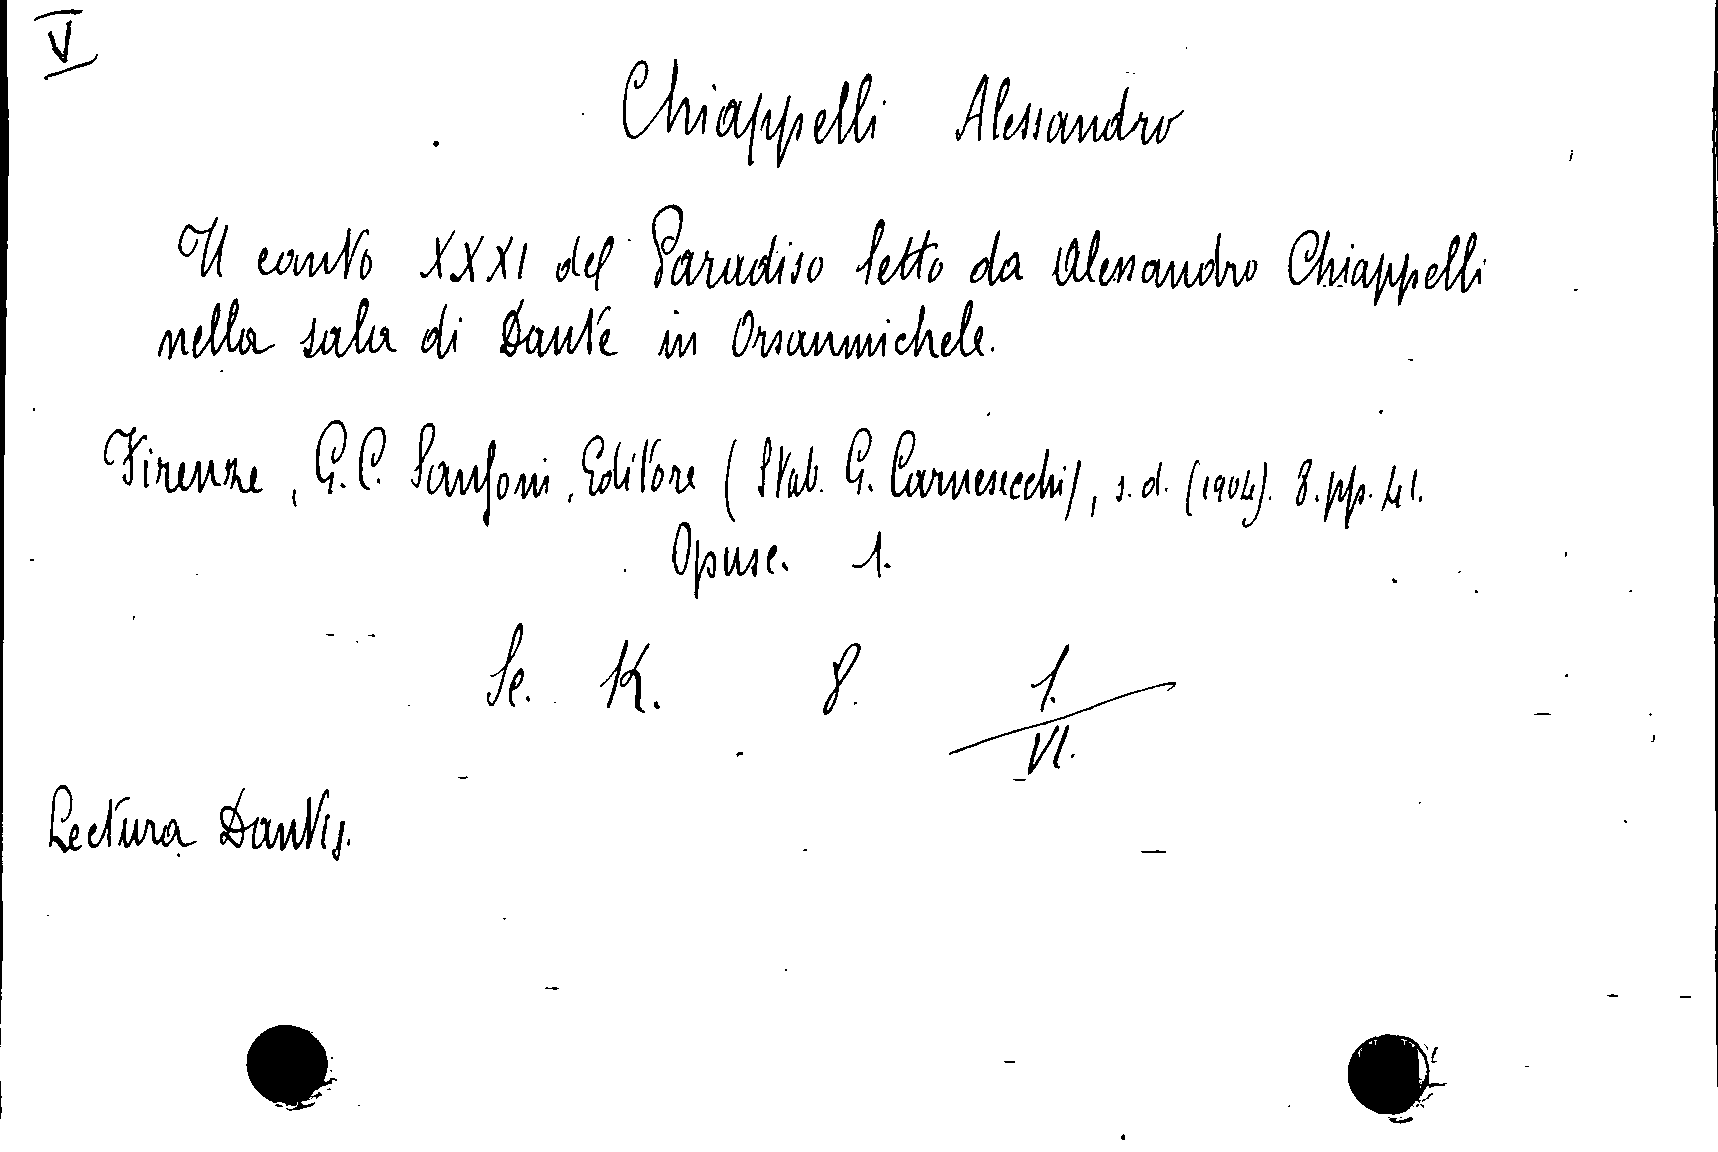 V
Chiappelli Alessandro
Il canto XXXI del Paradiso letto da Alessandro Chiappelli
nella sala di Dante in Orsanmichele.
Firenze, G. C. Sansoni, Editore (Stab. G. Carnesecchi), s. d. (1904). 8. pp. 41.
Opusc. 1.
Sc. K. 8. 1.
VI.
Lectura Dantis.